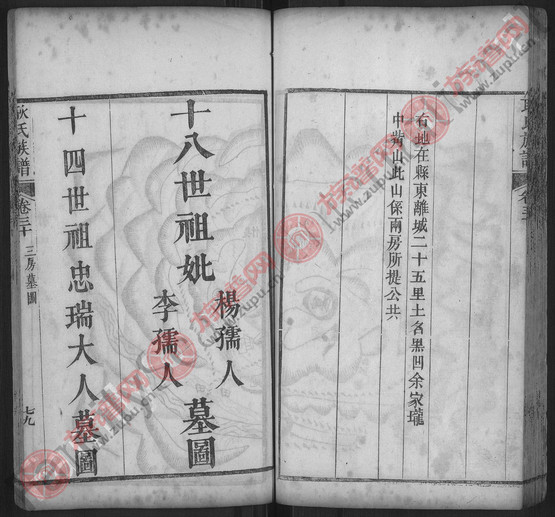 右地在縣東離城二十五里土名黑凹余家壠
中背山此山係兩房所提公共
十八世祖妣
楊孺人
李孺人
墓圖
十四世祖忠瑞大人墓圖
氏族譜
卷三十
三房墓圖
七九
族谱网
www.zupu.cn